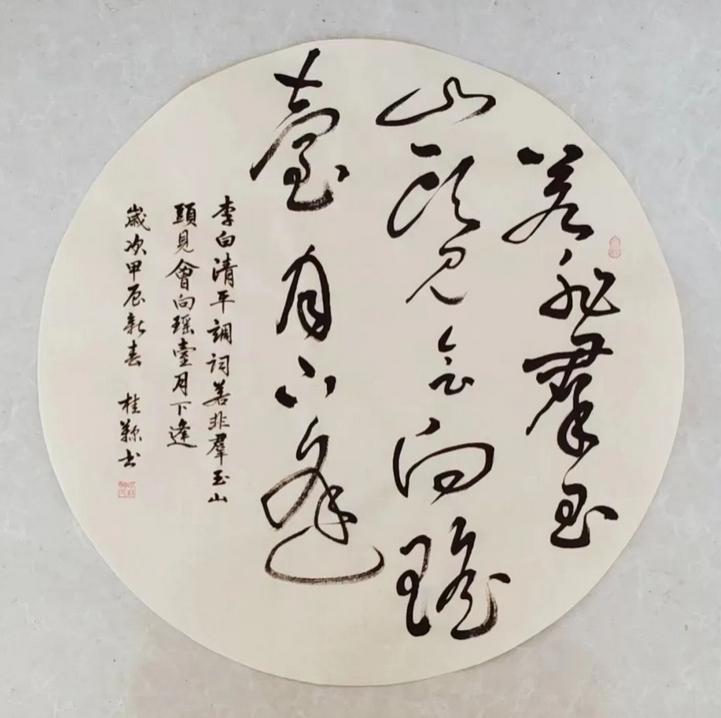 若非羣玉
山頭見會向瑶
臺月下逢
李白清平調詞若非羣玉山
頭見會向瑶臺月下逢
歲次甲辰新春 桂颖书